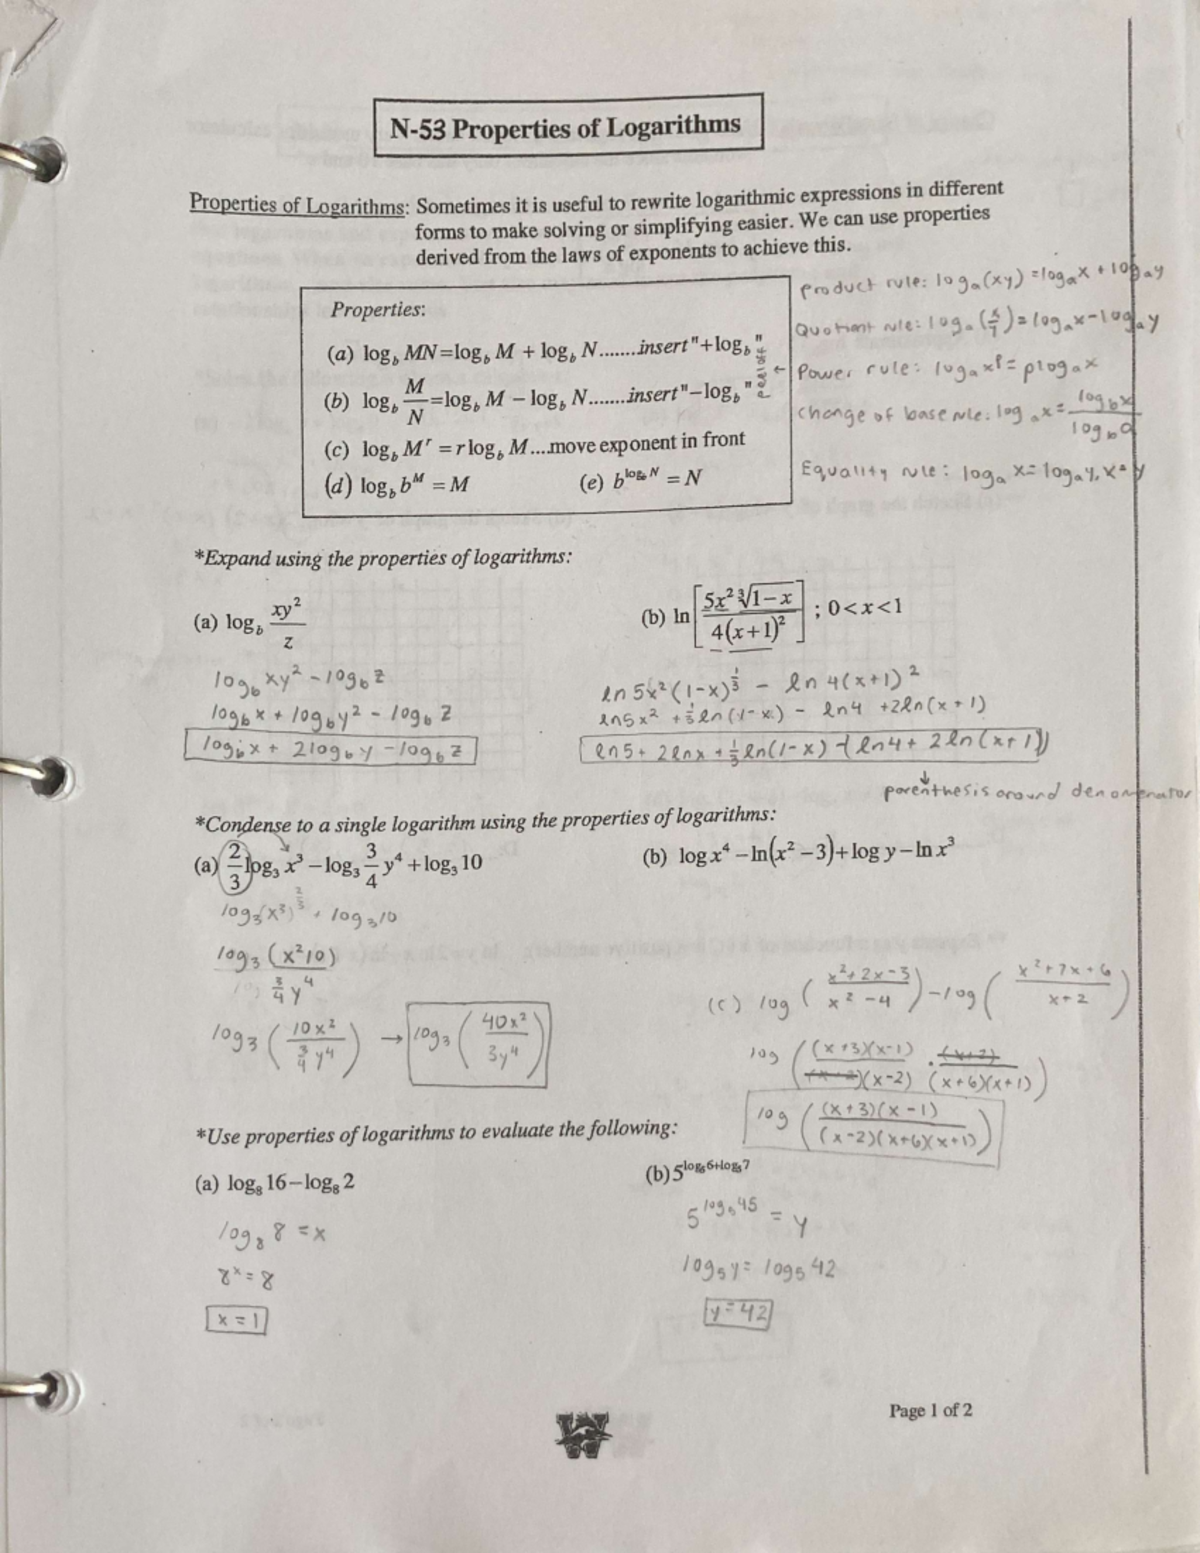 N-53 Properties of Logarithms
Properties of Logarithms: Sometimes it is useful to rewrite logarithmic expressions in different
forms to make solving or simplifying easier. We can use properties
derived from the laws of exponents to achieve this.
Properties:
(a) log_b MN=log_b M + log_b N.......insert"+log_b"
(b) log_b M/N=log_b M − log_b N.......insert"−log_b"
(c) log_b M^r = r log_b M....move exponent in front
(d) log_b b^M = M (e) b^(log_b N) = N
product rule: log_a(xy) = log_a x + log_a y
Quotient rule: log_a (x/y) = log_a x − log_a y
Power rule: log_a x^p = p log_a x
change of base rule: log_a x = log_b x / log_b a
Equality rule: log_a x = log_a y, x = y
*Expand using the properties of logarithms:
(a) log_b xy²/z
log_b xy² − log_b z
log_b x + log_b y² − log_b z
log_b x + 2log_b y − log_b z
(b) ln [5x² ∛(1−x) / 4(x+1)²] ; 0<x<1
ln 5x² (1−x)^(1/3) − ln 4(x+1)²
ln5x² + 1/3 ln(1−x) − ln4 +2ln(x+1)
ln5 + 2lnx + 1/3 ln(1−x) − (ln4 + 2ln(x+1))
parenthesis around denomenator
*Condense to a single logarithm using the properties of logarithms:
(a) 2/3 log₃ x³ − log₃ 3/4 y⁴ + log₃ 10
log₃(x³)^(2/3) + log₃10
log₃ (x²10)
3/4 y⁴
log₃ (10x² / 3/4 y⁴) → log₃ (40x² / 3y⁴)
(b) log x⁴ − ln(x² − 3) + log y − ln x³
(c) log (x²+2x−3 / x²−4) − log (x²+7x+6 / x+2)
log ((x+3)(x−1) / (x+2)(x−2) · (x+2) / (x+6)(x+1))
log ((x+3)(x−1) / (x−2)(x+6)(x+1))
*Use properties of logarithms to evaluate the following:
(a) log₈ 16 − log₈ 2
log₈ 8 = x
8^x = 8
x = 1
(b) 5^(log₅6+log₅7)
5^(log₅45) = y
log₅y = log₅42
y = 42
W
Page 1 of 2